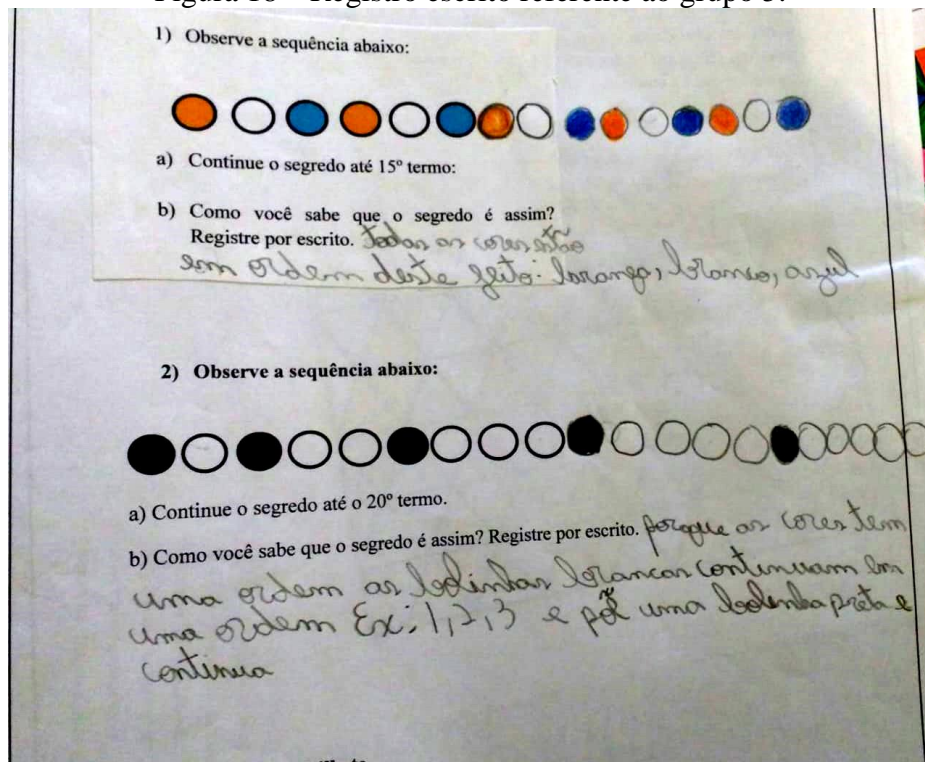 Figura 18 – Registro escrito referente ao grupo 3.
1) Observe a sequência abaixo:
a) Continue o segredo até 15º termo:
b) Como você sabe que o segredo é assim?
Registre por escrito. Todas as cores estão
em ordem deste jeito: laranja, branco, azul
2) Observe a sequência abaixo:
a) Continue o segredo até o 20º termo.
b) Como você sabe que o segredo é assim? Registre por escrito. porque as cores tem
uma ordem as bolinhas brancas continuam em
uma ordem Ex: 1,2,3 e põe uma bolinha preta e
continua